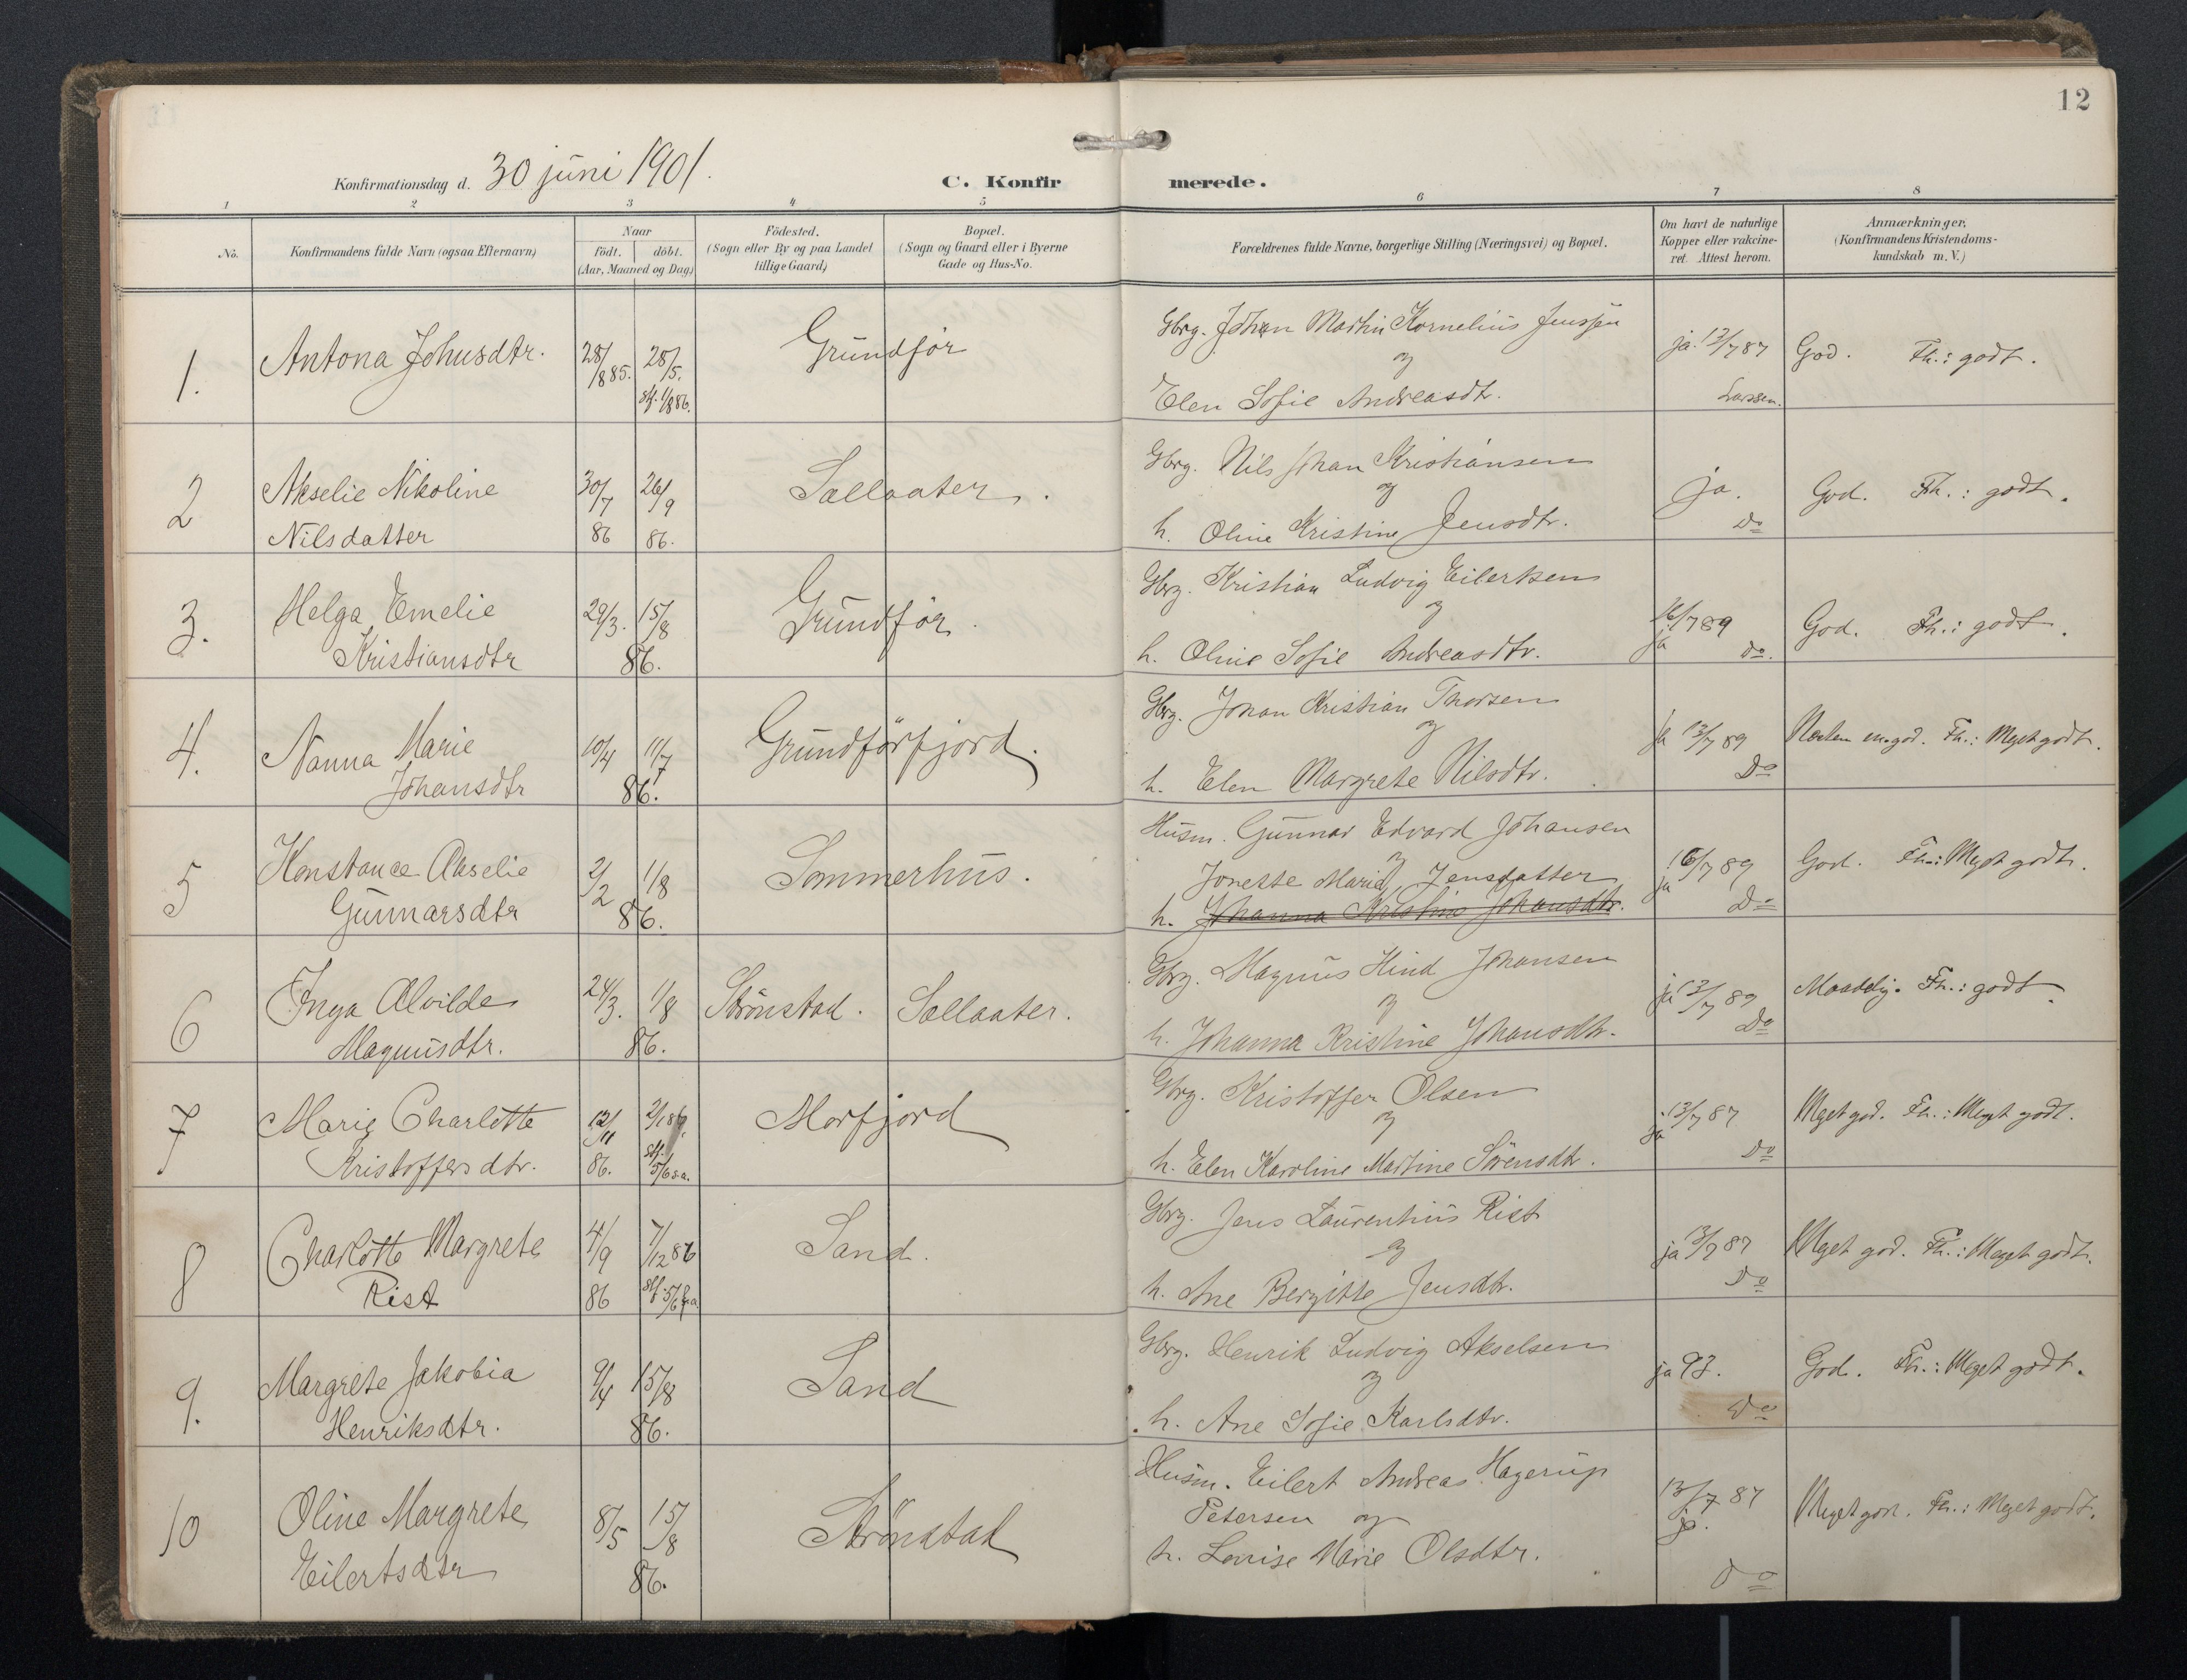 12
Konfirmationsdag d. 30 juni 1901.
C. Konfirmerede.
1 2 3 4 5 6 7 8
No.
Konfirmandens fulde Navn (ogsaa Efternavn)
Naar
født. døbt.
(Aar, Maaned og Dag)
Fødested.
(Sogn eller By og paa Landet
tillige Gaard)
Bopæl.
(Sogn og Gaard eller i Byerne
Gade og Hus-No.
Forældrenes fulde Navne, borgerlige Stilling (Næringsvei) og Bopæl.
Om havt de naturlige
Kopper eller vakcine-
ret. Attest herom.
Anmærkninger.
(Konfirmandens Kristendoms-
kundskab m. V.)
1.
Antona Johusdtr.
28/1 885.
28/5.
stf. 1/8 86.
Grundfør
Gbrg. Johan Martin Kornelius Jenssen
og
Elen Sofie Andreasdtr.
ja. 12/7 87
Larssen.
God. Fh.: godt.
2
Akselie Nikoline
Nilsdatter
30/7
86
26/9
86.
Sællaater.
Gbrg. Nils Johan Kristiansen
og
h. Oline Kristine Jensdtr.
ja.
Do
God. Fh.: godt.
3.
Helga Emelie
Kristiansdtr
29/3. 15/8
86.
Grundfør.
Gbrg. Kristian Ludvig Eilertsen
og
h. Oline Sofie Andreasdtr.
16/7 89
ja
do.
God. Fh.: godt.
4.
Nanna Marie
Johansdtr
10/4 11/7
86.
Grundførfjord.
Gbrg. Johan Kristian Thorsen
og
h. Elen Margrete Nilsdtr.
ja 13/7 89
Do
Næsten m. god. Fh.: Meget godt.
5
Konstance Akselie
Gunnarsdtr
2/2 1/8
86.
Sommerhus.
Husm. Gunnar Edvard Johansen
og
Jonette Marie Jensdatter
h. Johanna Kristine Johansdtr.
16/7 89
ja
Do
God. Fh.: Meget godt.
6
Inga Alvilde
Magnusdtr.
24/3. 1/8
86.
Strønstad. Sællaater.
Gbrg. Magnus Hind Johansen
og
h. Johanna Kristine Johansdtr.
ja 13/7 89
Do
Maadelig. Fh.: godt.
7
Marie Charlotte
Kristoffersdtr.
12/11
86.
2/1 87.
stf.
5/6 s.a.
Morfjord
Gbrg. Kristoffer Olsen
og
h. Elen Karoline Martine Sørensdtr.
ja 13/7 87
Do
Meget god. Fh.: Meget godt.
8
Charlotte Margrete
Rist
4/9
86
7/12 86
stf. 5/6
Sand.
Gbrg. Jens Laurentius Rist
og
h. Ane Bergitte Jensdtr.
ja 13/7 87
Do
Meget god. Fh.: Meget godt.
9.
Margrete Jakobia
Henriksdtr.
9/4 15/8
86.
Sand
Gbrg. Henrik Ludvig Akselsen
og
h. Ane Sofie Karlsdtr.
ja 93.
Do
God. Fh.: Meget godt.
10
Oline Margrete
Eilertsdtr
8/5 15/8
86.
Strønstad
Husm. Eilert Andreas Hagerup
Petersen og
h. Lovise Marie Olsdtr.
13/7 87
ja.
Do
Meget god. Fh.: Meget godt.